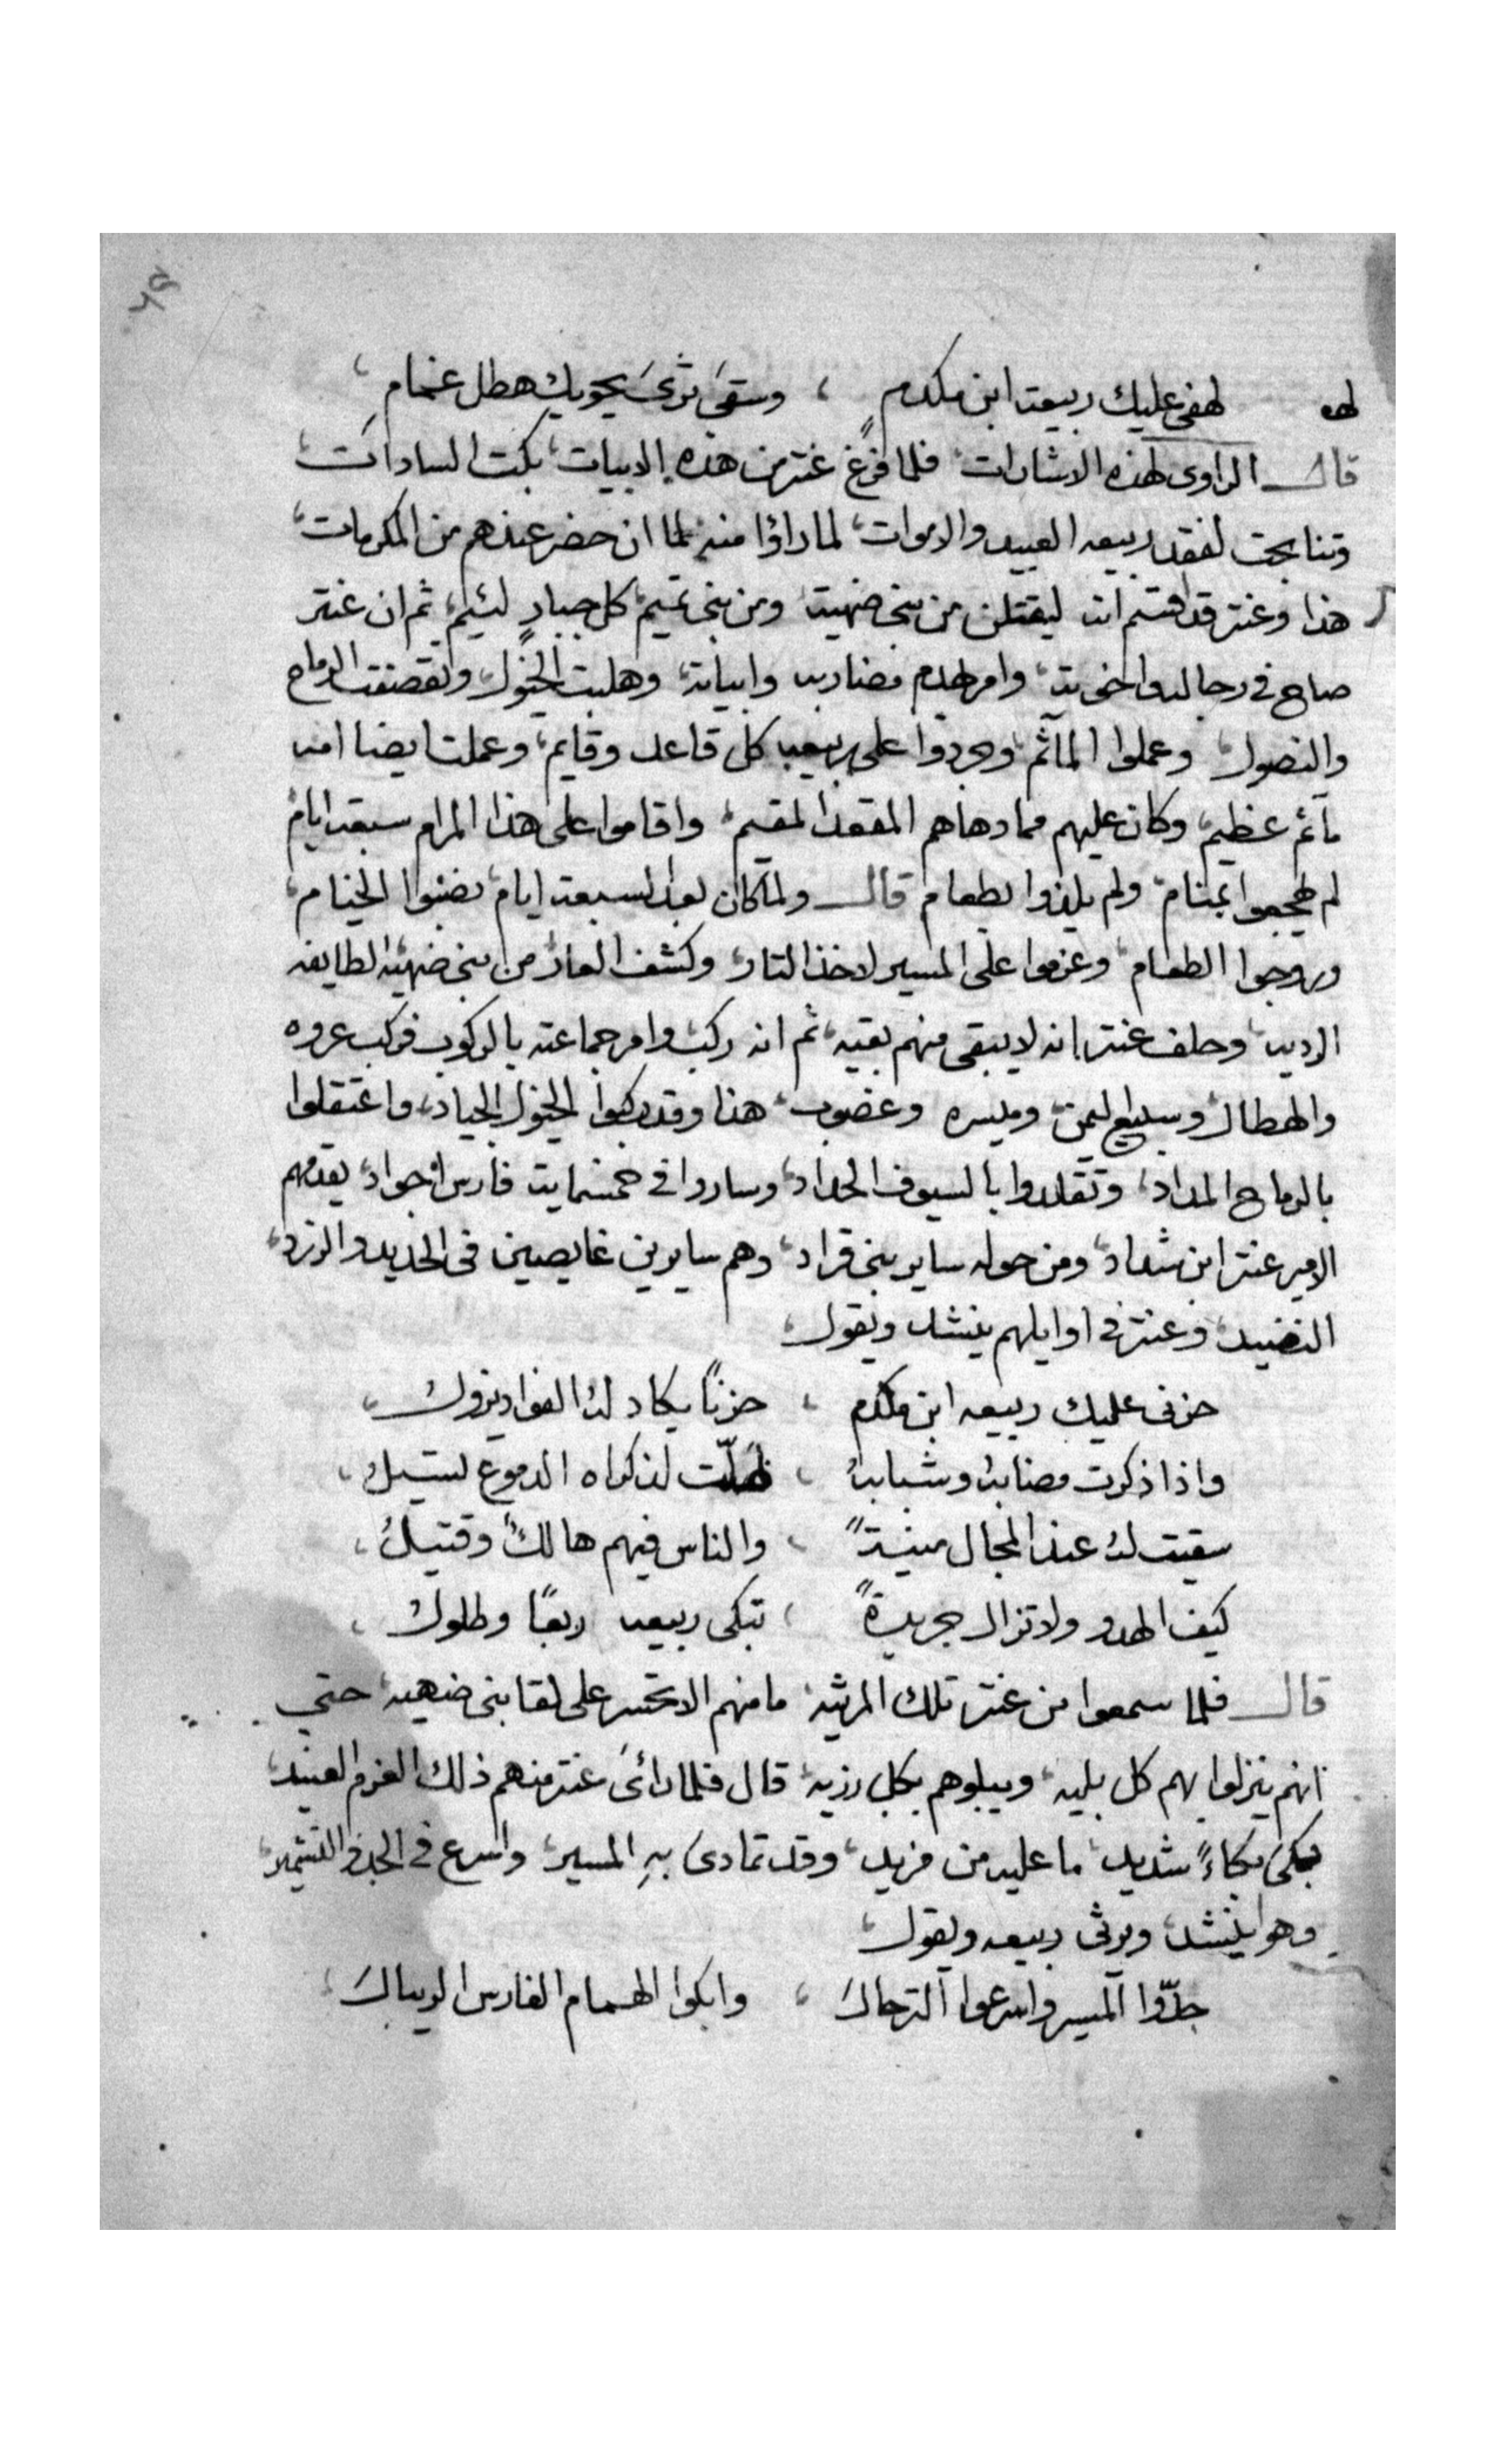 لهف لهفي عليك ربيعة ابن مكدم ، وسقى ثرى يحويك هطل غمام ،
قال الراوى لهذه الاشارات، فلما فرغ عنتر من هذه الابيات، بكت السادات،
وتنابحت لفقد ربيعه العبيد والاموات، لما راؤا منه لما ان حضر عندهم من المكرمات،
هذا وعنتر قد اقسم انه ليقتلن من بنى ضهية، ومن بنى تميم، كل جبار لئيم، ثم ان عنتر
صاح فى رجاله واخوته، وامر بهدم مضاربه وابياته، وهلبت الخيول، وتقصفت الرماح
والنصول، وعملوا المآتم، وجردوا على ربيعه كل قاعد وقايم، وعملت ايضا امه
مأتم عظيم، وكان عليهم مما دهاهم المقعد المقيم، واقاموا على هذا المرام سبعة ايام
لم هجعوا بمنام، ولم يلذوا بطعام، قال ولما كان بعد السبعة ايام، نصبوا الخيام،
وروجوا الطعام، وعزموا على المسير لاخذ التار، وكشف العار، من بنى ضهيه، الطايفه
الرديه، وحلف عنتر انه لا يبقى منهم بقيه، ثم انه ركب، وامر جماعته بالركوب، فركب عروه
والهطال، وسبيع اليمن، وميسره، وغضوب، هذا وقد ركبوا الخيول الجياد، واعتقلوا
بالرماح المداد، وتقلدوا بالسيوف الحداد، وساروا فى خمسماية فارس اجواد، يقدمهم
الامير عنتر ابن شداد، ومن حوله ساير بنى قراد، وهم سايرين غايصين فى الحديد والزرد،
النضيد، وعنتر فى اوايلهم ينشد ويقول،
حزنى عليك ربيعه ابن مكدم ، حزناً يكاد له الفواد يزول ،
واذا ذكرت مصابه وشبابه ، ظلّت لذكراه الدموع تسيل ،
سقيت له عند المجال منيةً ، والناس فيهم هالكٌ وقتيلُ ،
كيف الهدو ولا تزال جريدةً ، تبكى ربيعه ربعاً وطلول ،
قال فلما سمعوا من عنتر تلك المرثيه، ما منهم الا تحسر على لقا بنى ضهيه، حتى
انهم ينزلوا بهم كل بليه، ويبلوهم بكل رزيه، قال فلما رائ عنتر منهم ذلك العزم العنيد،
بكى بكاءً شديد، ما عليه من مزيد، وقد تمادى بهِ المسير، واسرع فى الجد والتشمير،
وهو ينشد، ويرثى ربيعه ويقول،
جدّوا المسير واسرعوا الترحال ، وابكوا الهمام الفارس الريبال ،